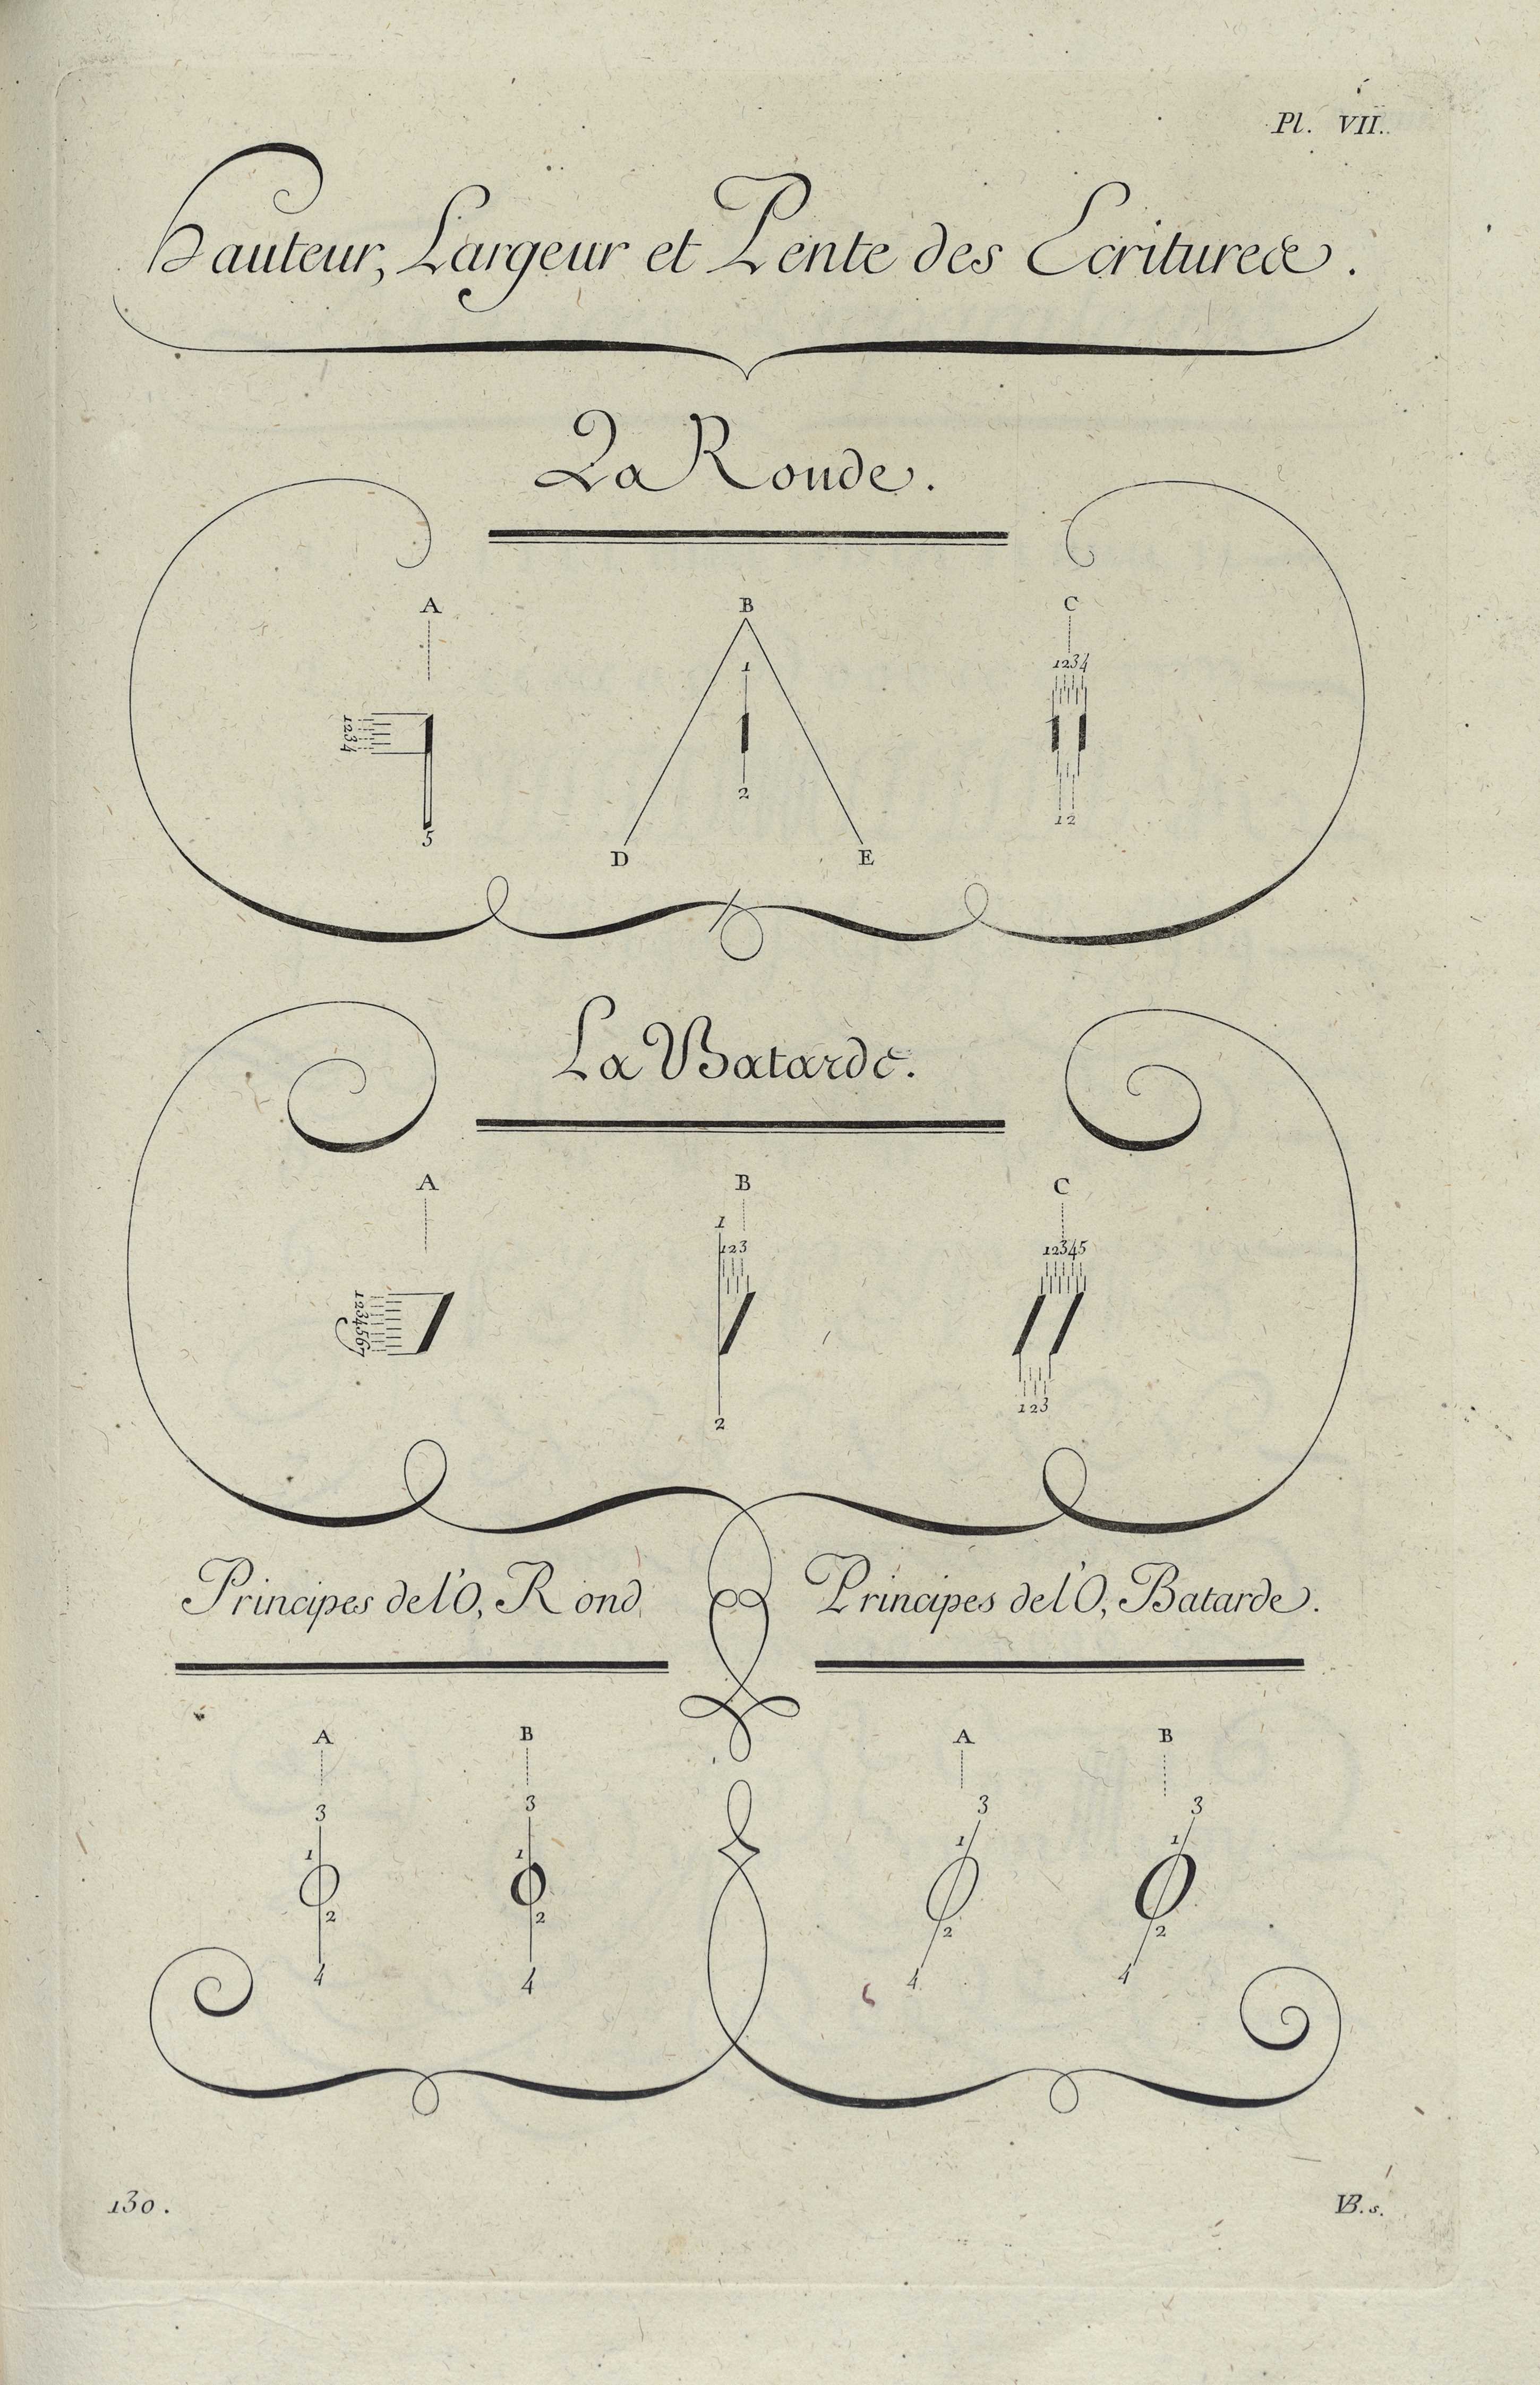 Pl. VII.
Hauteur, Largeur et Pente des Ecritures.
La Ronde.
A B C
1
1234
1234
2
12
5
D E
La Batarde.
A B C
1
123
12345
1234567
123
2
Principes de l'O, Rond
Principes de l'O, Batarde.
A B A B
3 3 3 3
1 1 1 1
2 2 2 2
4 4 4 4
130.